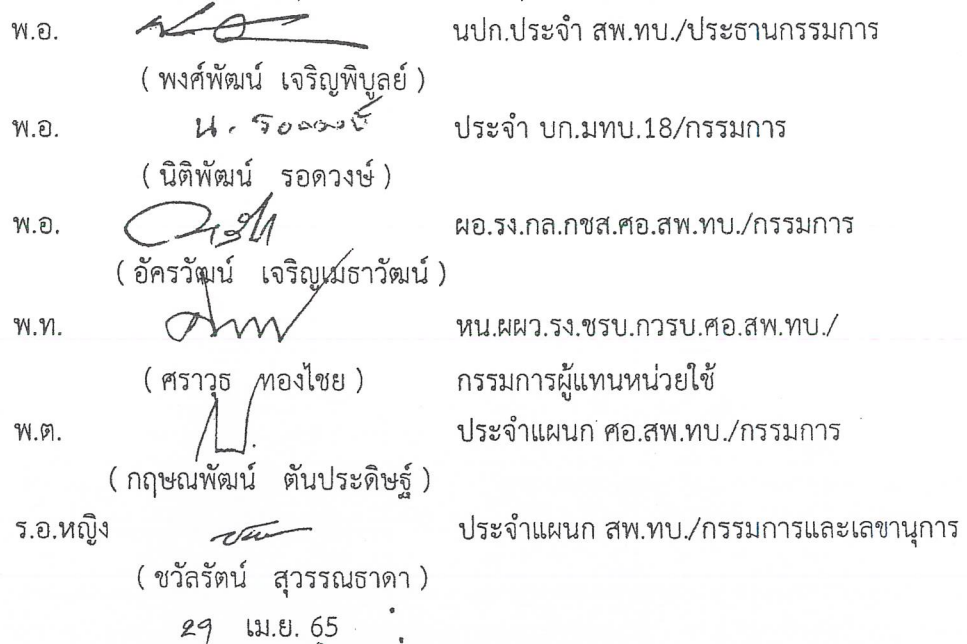 พ.อ. นปก.ประจำ สพ.ทบ./ประธานกรรมการ
( พงศ์พัฒน์ เจริญพิบูลย์ )
พ.อ. น. รอดวงษ์ ประจำ บก.มทบ.18/กรรมการ
( นิติพัฒน์ รอดวงษ์ )
พ.อ. ผอ.รง.กล.กซส.ศอ.สพ.ทบ./กรรมการ
( อัครวัฒน์ เจริญเมธาวัฒน์ )
พ.ท. หน.ผผว.รง.ซรบ.กวรบ.ศอ.สพ.ทบ./
( ศราวุธ ทองไชย ) กรรมการผู้แทนหน่วยใช้
พ.ต. ประจำแผนก ศอ.สพ.ทบ./กรรมการ
( กฤษณพัฒน์ ตันประดิษฐ์ )
ร.อ.หญิง ประจำแผนก สพ.ทบ./กรรมการและเลขานุการ
( ชวัลรัตน์ สุวรรณธาดา )
29 เม.ย. 65